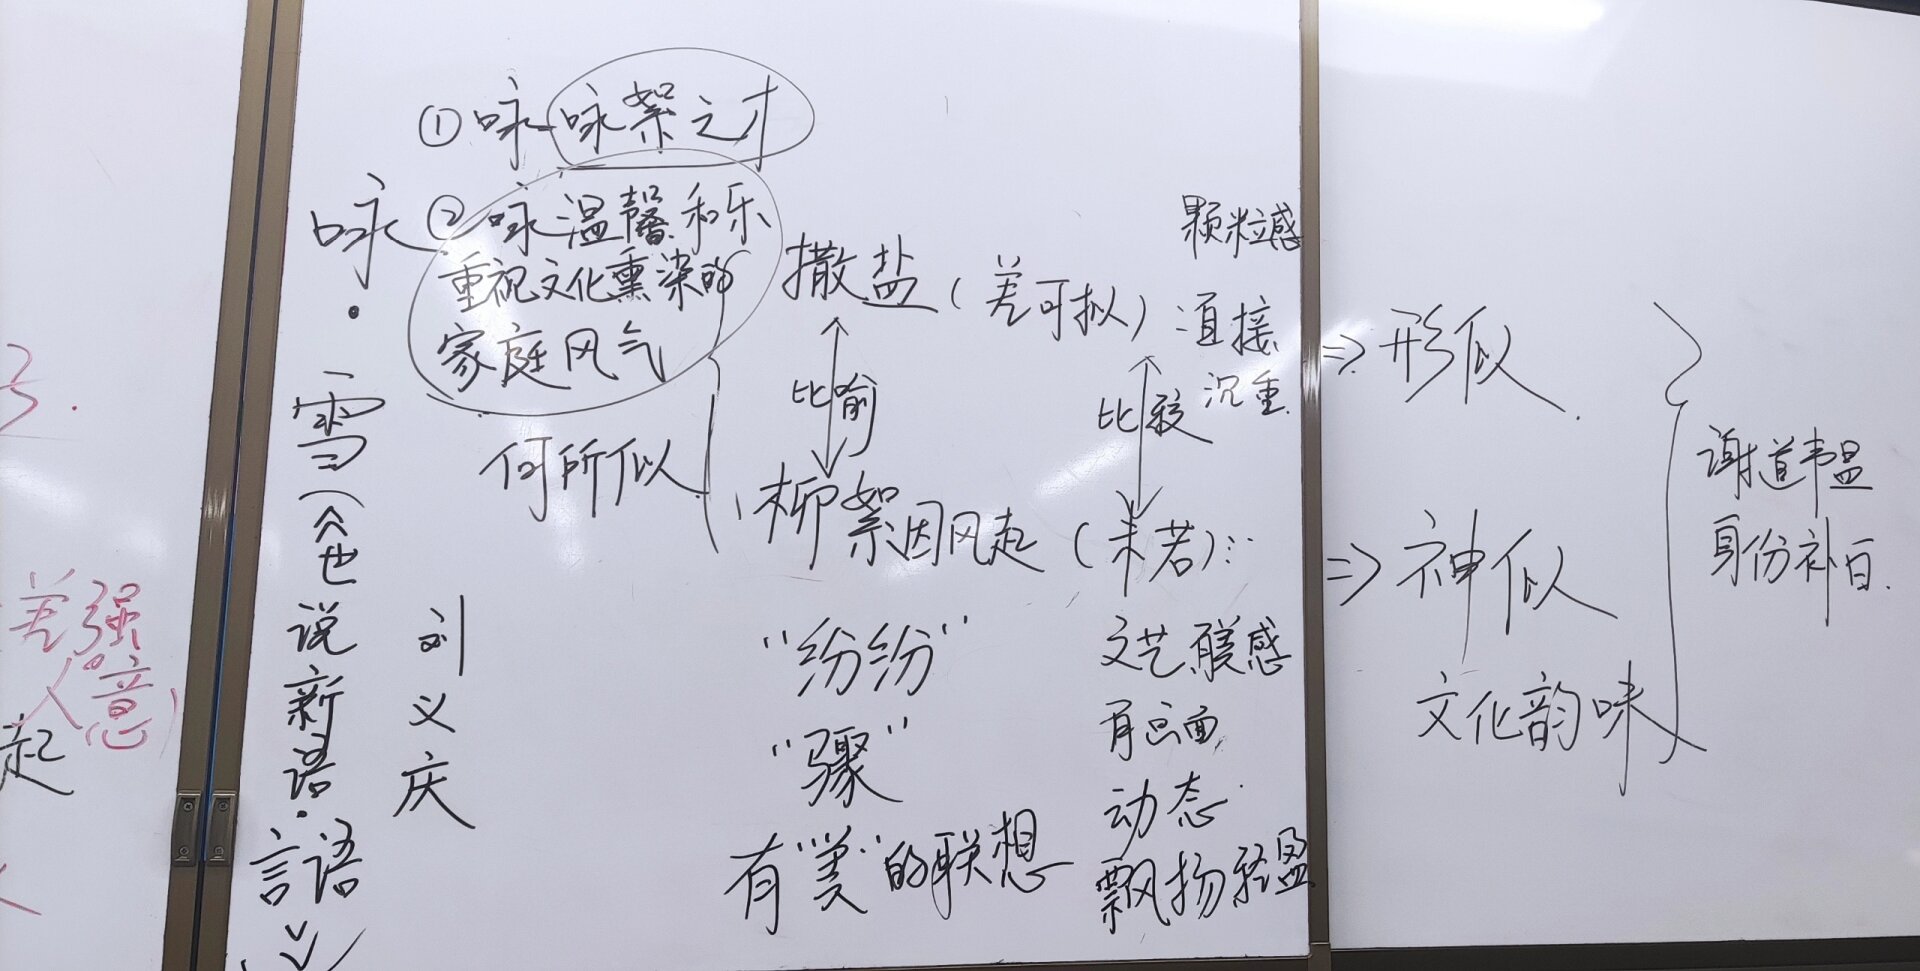 ①咏咏絮之才
②咏温馨和乐
重视文化熏染的
家庭风气
咏·雪《世说新语·言語》
刘义庆
何所似
撒盐(差可拟)
颗粒感
直接
沉重
比喻
比较
柳絮因风起(未若):
"纷纷"
"骤"
有"美"的联想
文艺
感
有画面
动态
飘扬轻盈
⇒形似
⇒神似
文化韵味
谢道韫
身份补白
差强
人意)
起